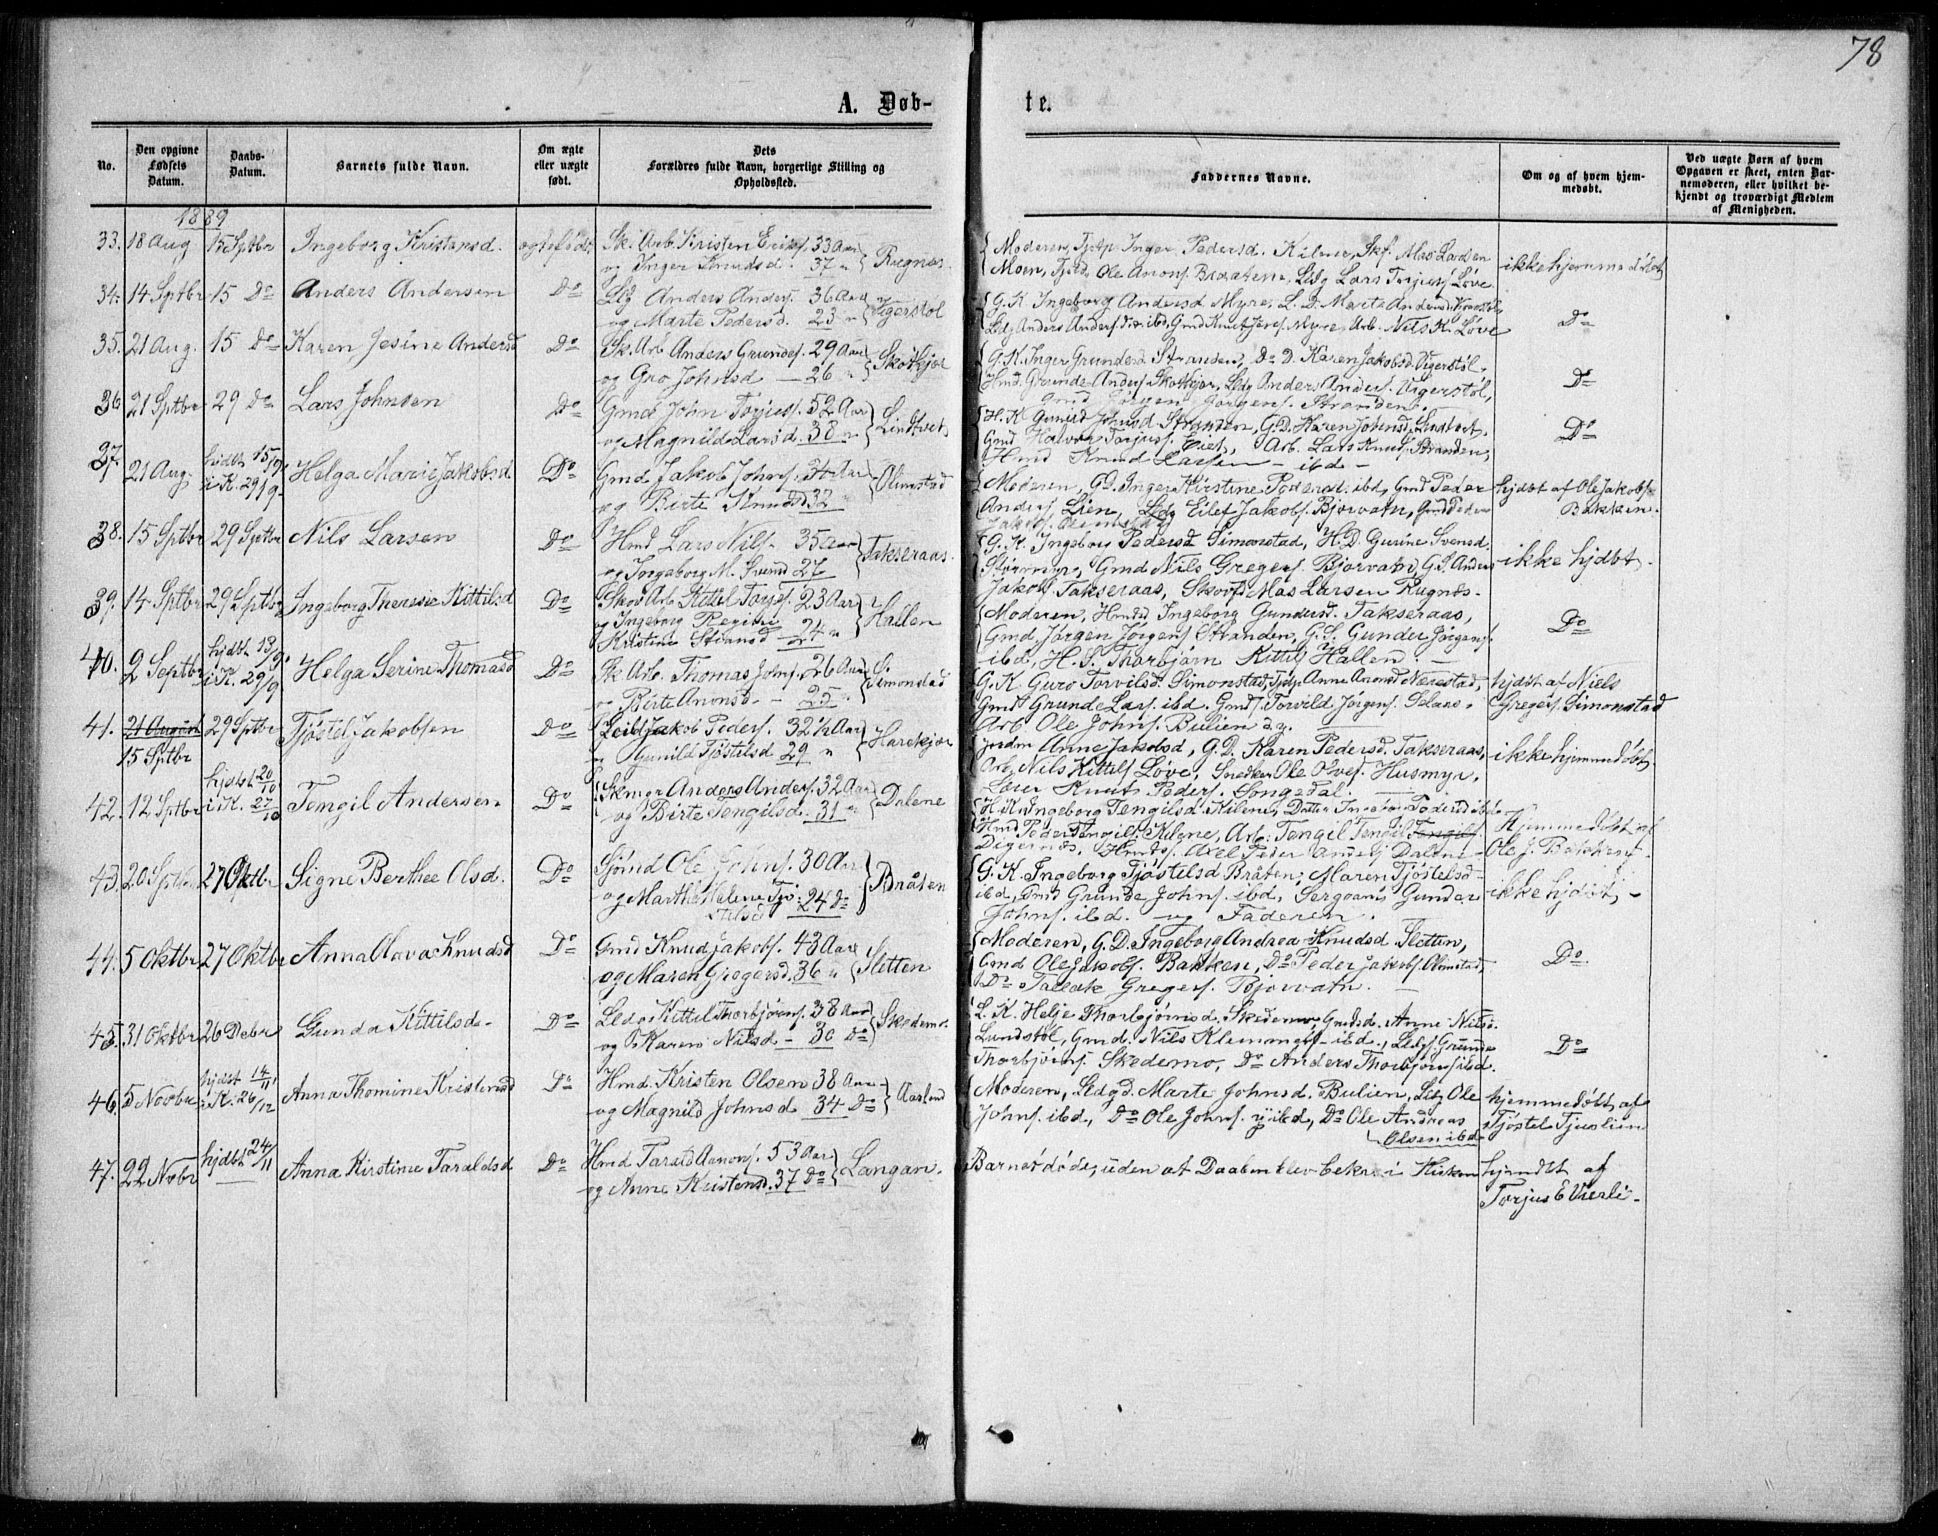 78
A. Døb-
te.
No.
Den opgivne Fødsels Datum.
Daabs-Datum.
Barnets fulde Navn.
Om ægte eller uægte født.
Dets Forældres fulde Navn, borgerlige Stilling og Opholdssted.
Faddernes Navne.
Om og af hvem hjemmedøbt.
Ved uægte Børn af hvem Opgaven er skeet, enten Barnemoderen, eller hvilket bekjendt og troværdigt Medlem af Menigheden.
1889
33. 18 Aug 15 Sptbr Ingeborg Kristensd. ægtefødt Sk. Arb. Kristen Eriks. 33 Aar
og Inger Knudsd. 37 " Rugnæs
Moderen, Tjp. Inger Pedersd. Kilene, Skf. Mas Larsen
Moen, Ole Anons. Braatene, Ldg Lars Torjus. Løve
ikke hjemmedøbt
34. 14 Sptbr 15 Do Anders Andersen Do Ldg Anders Anders. 36 Aar
og Marte Pedersd. 23 " Vigerstøl
G. K. Ingeborg Andersd Myre, L. D. Marte Andersd
Ldg Anders Anders. ibd, Gmd Knut Myre, Arb. Nils K. Løve
Do
35. 21 Aug. 15 Do Karen Jesine Andersd Do Sk. Arb Anders Grundes. 29 Aar
og Gro Johnsd — 26 " Skotkjær
G. K. Inger Grundesd Stranden, Do D. Karen Jakobsd. Vigerstøl,
Hmd. Grunde Anders. Skotkjær, Ldg Anders Anders. Vigerstøl,
Gmd Jørgen Jørgens. Stranden.
Do
36 21 Sptbr 29 Do Lars Johnsen Do Gmd John Torjus. 52 Aar
og Magnild Larsd. 38 " Lindtveit
H. K. Gunild Johnsd. Stranden, G. D. Karen Johnsd. Lindtveit,
Gmd Halvor Torjus. Lien, Arb. Lars Knuts. Stranden,
Hmd Knud Larsen — ibd —
Do
37. 21 Aug. hjdbt 15/9 i K. 29/9 Helga Marie Jakobsd Do Gmd Jakob Johns. 34 Aar
og Birte Knudsd 32 " Olimstad
Moderen, G. D. Inger Kirstine Pedersd. ibd, Gmd Peder
Anders. Lien, Ldg Eilef Jakobs. Bjorvatn, Gmd Peder
Jakobs. Olimstad
hjdbt af Ole Jakobs.
Bakken.
38. 15 Sptbr 29 Sptbr Nils Larsen Do Hmd Lars Nils. 35 Aar
og Ingeborg M. Svensd 27 Takseraas.
G. K. Ingebor Pedersd Simonstad, H. D. Gurine Svensd.
Størmyr, Gmd Nils Gregers. Bjorvatn, G. S. Anders
Jakobs. Takseraas, Skovf Mas Larsen Rugnæs.
ikke hjdbt.
39. 14 Sptbr 29 Sptbr Ingeborg Therese Kittilsd Do Skov Arb Kittel Torjes. 23 Aar
og Ingeborg Regine
Kristine 24 " Hallen
Moderen, Hmdsd Ingeborg Gundersd. Takseraas,
Gmd. Jørgen Jørgens. Stranden, G. S. Gunder Jørgens.
ibd, H. S. Thorbjørn Kittels. Hallen. —
Do
40. 2 Septbr hjdbt 13/9 i K. 29/9 Helga Serine Thomasd Do Sk Arb. Thomas Johns. 26 Aar
og Birte Anonsd. — 25 " S. Simonstad
G. K Guro Torvilsd. Simonstad, Tjp Anne Anonsd Nærestad,
Gmd Grunde Lars. ibd. Gmds. Torvild Jørgens. Selaas.
Arb Ole Johns. Bulien d.y.
hjdbt af Niels
Gregers. Simonstad
41. 21 August 15 Sptbr 29 Sptbr Tjøstel Jakobsen Do Leild Jakob Peders. 32½ Aar
og Gunild Tjøstelsd 29 " Harekjær
Jordm Anne Jakobsd, G. D. Karen Pedersd. Takseraas,
Arb. Nils Kittels. Løve, Snedker Ole Olves. Husmyr,
Lærer Knut Peders. Songedal. —
ikke hjemmedøbt.
42. 12 Sptbr hjdbt 20/10 i K. 27/10 Tengil Andersen Do Anders Anders. 32 Aar
og Birte Tengilsd. 31 " Dalene
H. K. Ingeborg Tengilsd. Kilene, Datter Inger Pedersd ibd
Hmd Peder Tengils. Kilene, Arb. Tengil Tengils.
Digernæs, Axel Peder Dalene —
Hjemmedøbt af
Ole J. Bakken.
43. 20 Sptbr 27 Oktbr Signe Berthee Olsd. Do Sjømd Ole Johns. 30 Aar
og Marthe Helene Tjøstelsd 24 Do Braaten
G. K. Ingeborg Tjøstelsd Bråten, Maren Tjøstelsd
ibd, Gmd Grunde Johns. ibd, Sergeant Gunder
Johns. ibd. og Faderen.
ikke hjdbt —
44. 5 Oktbr 27 Oktbr Anna Olova Knudsd Do Gmd Knud Jakobs. 43 Aar
og Maren Gregersd. 36 " Sletten
Moderen, G. D. Ingeborg Andrea Knudsd. Sletten,
Gmd Ole Jakobs. Bakken, Do Peder Jakobs. Olimstad,
Do Tallak Gregers. Bjorvatn. —
Do
45. 31 Oktbr 26 Debr Gunda Kittilsd. Do Ledg Kittel Thorbjørns. 38 Aar
og Karen Nilsd — 30 Do Skedemo.
L. K. Helje Thorbjørnsd, Skedemo, Gmdsd. Anne Nilsd.
Lundstøl, Gmd. Nils Klemmets. — ibd., Ledgs. Grunde
Thorbjørns. Skedemo, Do Anders Thorbjørns. ibd.
Do
46. 5 Novbr hjdbt 14/11 i K. 26/12 Anna Thomine Kristensd Do Hmd. Kristen Olsen 38 Aar
og Magnild Johnsd 34 Do Aasland
Moderen, Ledgd. Marte Johnsd. Bulien, Ldg Ole
Johns. ibd, Do Ole Johns. y. ibd, Do Ole Andreas
Olsen ibd.
hjemmedøbt af
Tjøstel Tjuslien
47. 22 Novbr hjdbt 24/11 Anna Kirstine Taraldsd Do Hmd Tarald Aanons. 53 Aar
og Anne Kristensd. 37 Do Langan.
Barnet døde, uden at Daaben blev bekr. i Kirken
hjmdbt af
Torjus E Vierli.